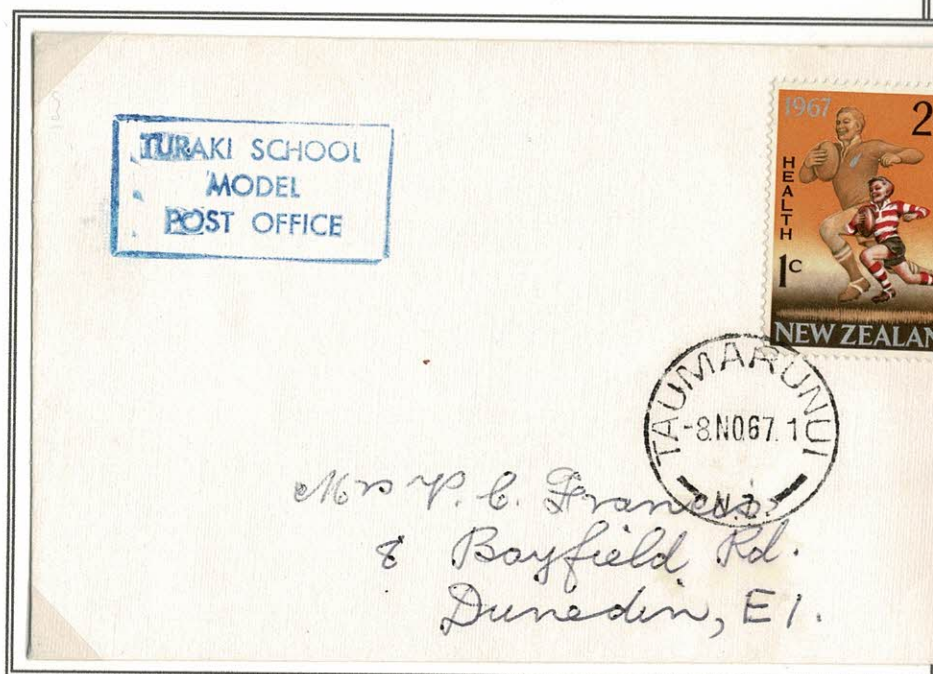 TURAKI SCHOOL
MODEL
POST OFFICE
1967
2
HEALTH
1c
NEW ZEALAN
TAUMARUNUI
-8.NO.67.1
N.Z.
Mrs P. C. Francis
8 Bayfield Rd.
Dunedin, E1.